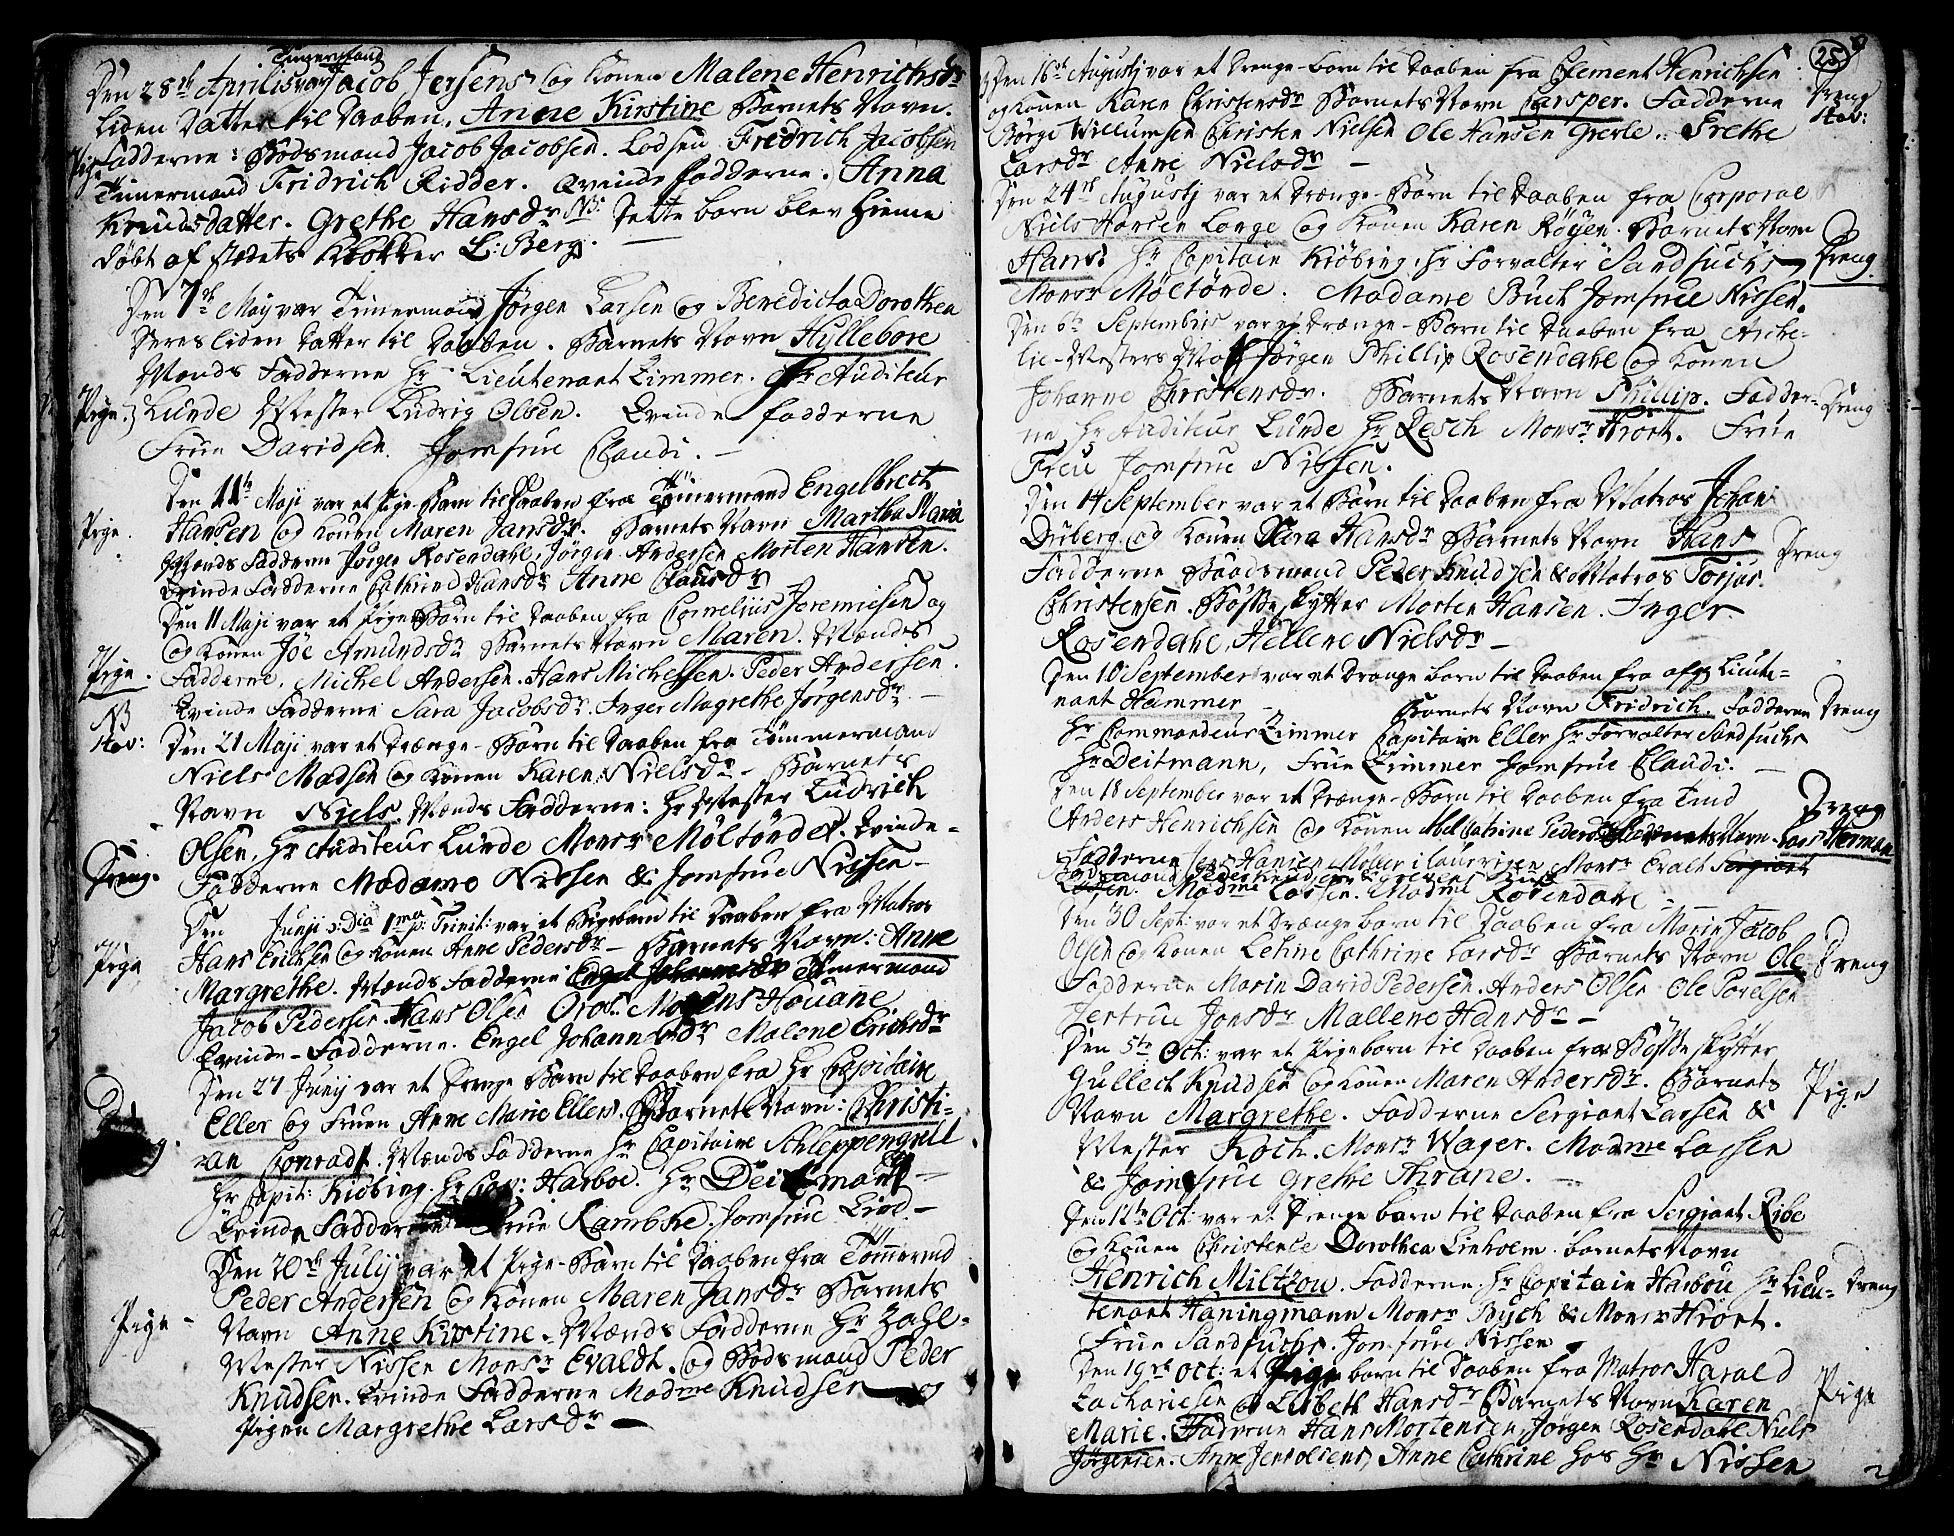 Timermand
Den 28de Aprilis var Jacob Jensens og Konen Malene Henrichsdr
liden Datter til Daaben, Anne Kirstine Barnets Navn.
Pige Fadderne: Bodsmand Jacob Jacobsen. Lodsen Fredrich Jacobsen
Timermand Fridrich Ridder. Qvinde fadderne. Anna
Knudsdatter. Grethe Hansdr NB: Dette barn blev hieme
døbt af stedets Klokker L: Berg.
Den 7de May var Timermand Jørgen Larsen og Benedicta Dorothea
Deres liden Datter til Daaben. Barnets Navn Hyllebore
Mands Fadderne Hr Lieutenant Zimmer. Hr Auditeur
Pige Lunde Mester Ludvig Olsen. Qvinde fadderne
Frue Davidsen. Jomfrue Claudi.
Den 11te Maji var et Pige Barn til Daaben fra Tømermand Engelbrect
Pige. Hansen og Konen Maren Jansdr. Barnets Navn Martha Maria
Mands Fadderne Jørgen Rosendahl, Jørgen Andersen Morten Hansen.
Qvinde Fadderne Cathrine Hansdr Anne Clausdr
Den 11 Maji var et Pige Barn til Daaben fra Cornelius Jeremiesen og
og Konen Joe Amundsdr Barnets Navn Maren. Mands
Pige. Fadderne. Michel Andersen. Hans Michelsen. Peder Andersen.
NB Qvinde Fadderne Sara Jacobsdr. Inger Magrethe Jørgensdr.
Den 21 Maji var et Drænge-Barn til Daaben fra Tømmermand
Niels Madsen og Konen Karen Nielsdr Barnets
Navn Niels. Mands Fadderne: Hr Mester Ludvich
Olsen, Hr Auditeur Lunde Monsr Møltønde. Qvinde-
Dreng. Fadderne Madame Nissen & Jomfrue Nissen
Den Junij Dia 1ma p: Trinit: var et Pigebarn til Daaben fra Matros
Pige Hans Erichsen og Konen Anne Pedersdr Barnets Navn: Anne
Margrethe. Mands Fadderne Tømermand
Jacob Pedersen. Hans Olsen Mogens Houane
Qvinde-Fadderne. Engel Johannesdr Malene Erichsdr
Den 27 Junij var et Drenge Barn til Daaben fra Hr Capitaine
Eller og Fruen Anne Marie Ellers. Barnets Navn: Christi-
an Conrad. Mands Fadderne Hr Capitaine Schleppengrell
Hr Capit: Kiøbing. Hr Cap: Harboe. Hr Deitmann
Qvinde Fadderne Frue Rambske. Jomfrue Lind.
Den 20de Julij var et Pige-Barn til Daaben fra Tømmermd
Peder Andersen og Konen Maren Jansdr Barnets
Pige Navn Anne Kirstine. Mands Fadderne Hr Zahl-
Mester Nissen Monsr Evaldt. og Bodsmand Peder
Knudsen. Qvinde Fadderne Madme Knudsen og
Pigen Margrethe Larsdr
25
Den 16de Augustj var et Drenge-barn til Daaben fra Clement Henrichsen
og Konen Karen Christensdr Barnets Navn Carsper. Fadderne Dreng
Børge Willumsen Christen Nielsen Ole Hansen Grerle. Grethe
Larsdr Anne Nielsdr
Den 24de Augustj var et Drænge-Barn til Daaben fra Corporal
Niels Hansen Lange og Konen Karen Røyen. Barnets Navn
Hans Hr Capitain Kiøbing, Hr Forvalter Sandfuchs Dreng
Monsr Møltønde. Madame Buch Jomfrue Nissen.
Den 6te Septembris var et Drænge-Barn til Daaben fra Arche-
lie-Mesters Jørgen Phillip Rosendahl og Konen
Johanne Christensdr. Barnets Navn Phillip. Fadder- Dreng
ne Hr Auditeur Lunde Hr Resch Monsr Hroet. Frue
Jomfrue Nissen.
Den 14 September var et Barn til Daaben fra Matros Johan
Druberg og Konen Sara Hansdr Barnets Navn Hans Dreng
Fadderne Baadsmand Peder Knudsen & Matros Torjus
Christensen. Bøsseskytter Morten Hansen. Inger
Rosendahl, Hellene Nielsdr
Den 10 September var et Drænge barn til Daaben fra afg Lieute-
nant Hammer Barnets Navn Fridrich. Fadderne Dreng
Hr Commandeur Zimmer Capitain Eller Hr Forvalter Sandfuchs
Hr Deitmann, Frue Zimmer Jomfrue Claudi.
Den 18 September var et Drænge-Barn til Daaben fra Timd Dreng
Anders Henrichsen og Konen Abel Catrine Barnets Navn Lars Herman
Fadderne Jens Hansen Møller i Laurvigen Monsr Evalt
Madme Lassen. Madme Rosendahl
Den 30 Sept: var et Drænge barn til Daaben fra Marin Jacob
Olsen og Konen Lehne Cathrine Larsdr Barnets Navn Ole Dreng
Fadderne Marin David Pedersen. Anders Olsen Ole Povelsen
Gertrue Jonsdr Mallene Hansdr
Den 5te Oct: var et Pigebarn til Daaben fra Bøsseskytter
Gullech Knudsen og Konen Maren Andersdr. Barnets Pige
Navn Margrethe. Fadderne Sergiant Larsen &
Mester Koch. Monsr Wager. Madme Lassen
& Jomfrue Grethe Thrane.
Den 12te Oct: var et Drenge barn til Daaben fra Sergiant Ribe
og Konen Christence Dorothea Linholm. barnets Navn
Henrich Miltzou. Fadderne. Hr Capitain Harbou Hr Lieu- Dreng
tenant Haningmann Monsr Bÿch & Monsr Hroet.
Frue Sandfuchs. Jomfrue Nissen
Den 19de Oct: et Pige barn til Daaben fra Matros Harald
Zachariesen og Lisbeth Hansdr Barnets Navn Karen Pige
Marie. Fadderne Hans Mortensen, Jørgen Rosendahl Niels
Jørgensen. Anne Jensolsens, Anne Cathrine hos Hr Nissen